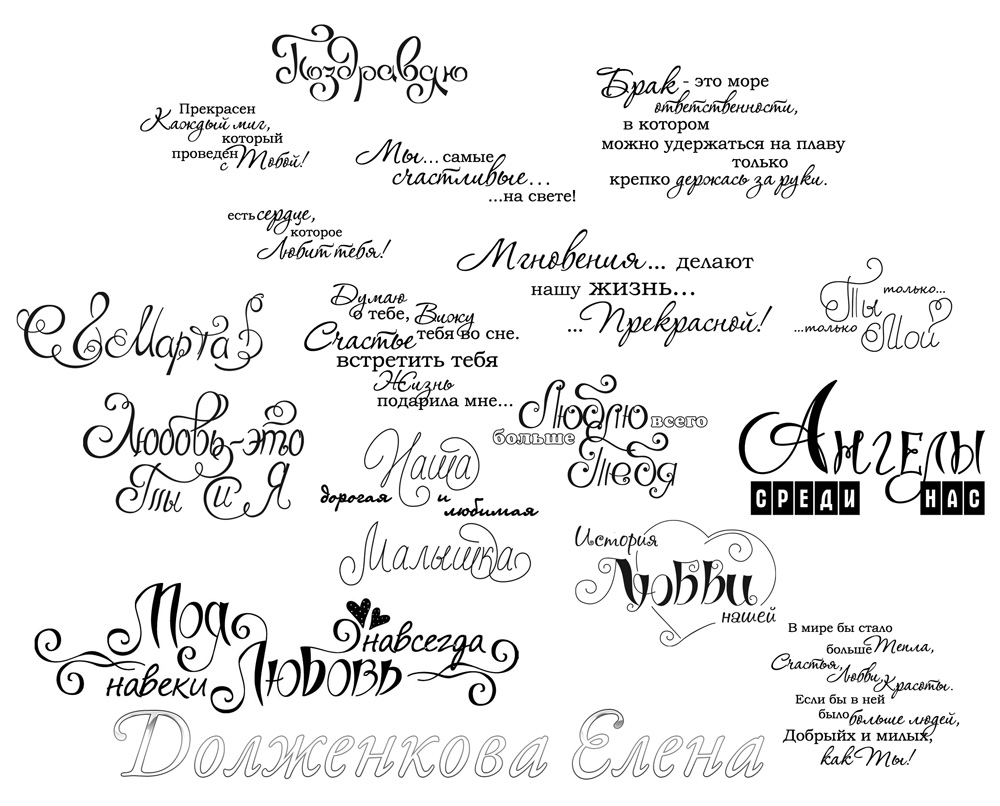 Поздравляю
Прекрасен
Каждый миг,
который
проведён
с Тобой!
Мы... самые
счастливые...
...на свете!
Брак - это море
ответственности,
в котором
можно удержаться на плаву
только
крепко держась за руки.
есть сердце,
которое
Любит тебя!
Мгновения... делают
нашу жизнь...
...Прекрасной!
Ты только...
...только Мой
С 8 Марта
Думаю
о тебе, Вижу
Счастье тебя во сне.
встретить тебя
Жизнь
подарила мне...
Любовь-это
Ты и Я
Люблю всего
больше
Тебя
Наша
дорогая и
любимая
Малышка
Ангелы
СРЕДИ НАС
История
Любви
нашей
Моя
навсегда
навеки Любовь
В мире бы стало
больше Тепла,
Счастья, Любви, Красоты.
Если бы в ней
было больше людей,
Добрыйх и милых,
как Ты!
Долженкова Елена